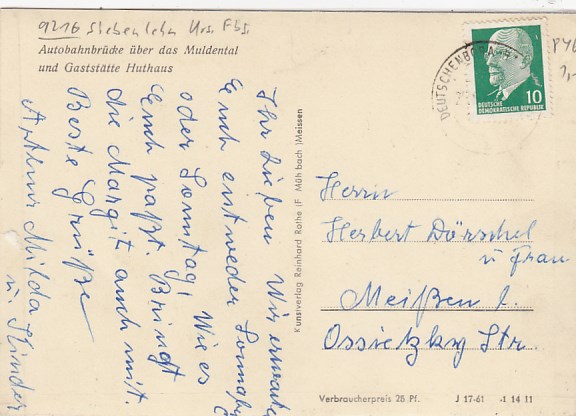 9216 Siebenlehn Krs. Fbg.
Autobahnbrücke über das Muldental
und Gaststätte Huthaus
DEUTSCHENBORA
DEUTSCHE
DEMOKRATISCHE REPUBLIK
10
Ihr Lieben Wir erwarten
Euch entweder Sonnab
oder Sonntag, Wie es
Euch paßt. Bringt
die Margit auch mit.
Beste Grüße
Arthur Milda
u. Kinder
Kunstverlag Reinhard Rothe (F. Mühbach) Meissen
Herrn
Herbert Dörschel
u Frau
Meißen
Ossietzky Str.
Verbraucherpreis 25 Pf.
J 17-61 -1 14 11